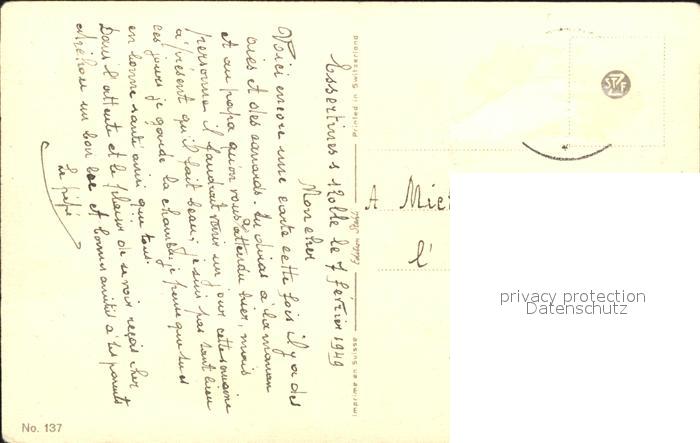 Essertines s Rolle le 7 février 1949
Mon cher
Voici encore une carte cette fois il y a des
oies et des canards. Tu diras à la maman
et au papa qu'on vous a attendu hier, mais
personne il faudrait venir un jour cette semaine
à présent qu'il fait beau, je suis pas tant bien
ces jours je garde la chambre, je pense que tu es
en bonne santé ainsi que tous.
Dans l'attente et le plaisir de se voir reçois cher
un bon bec et bonnes amitiés à tes parents
Le pépé
A Mie
l'
Printed in Switzerland
Imprimé en Suisse
No. 137
privacy protection
Datenschutz